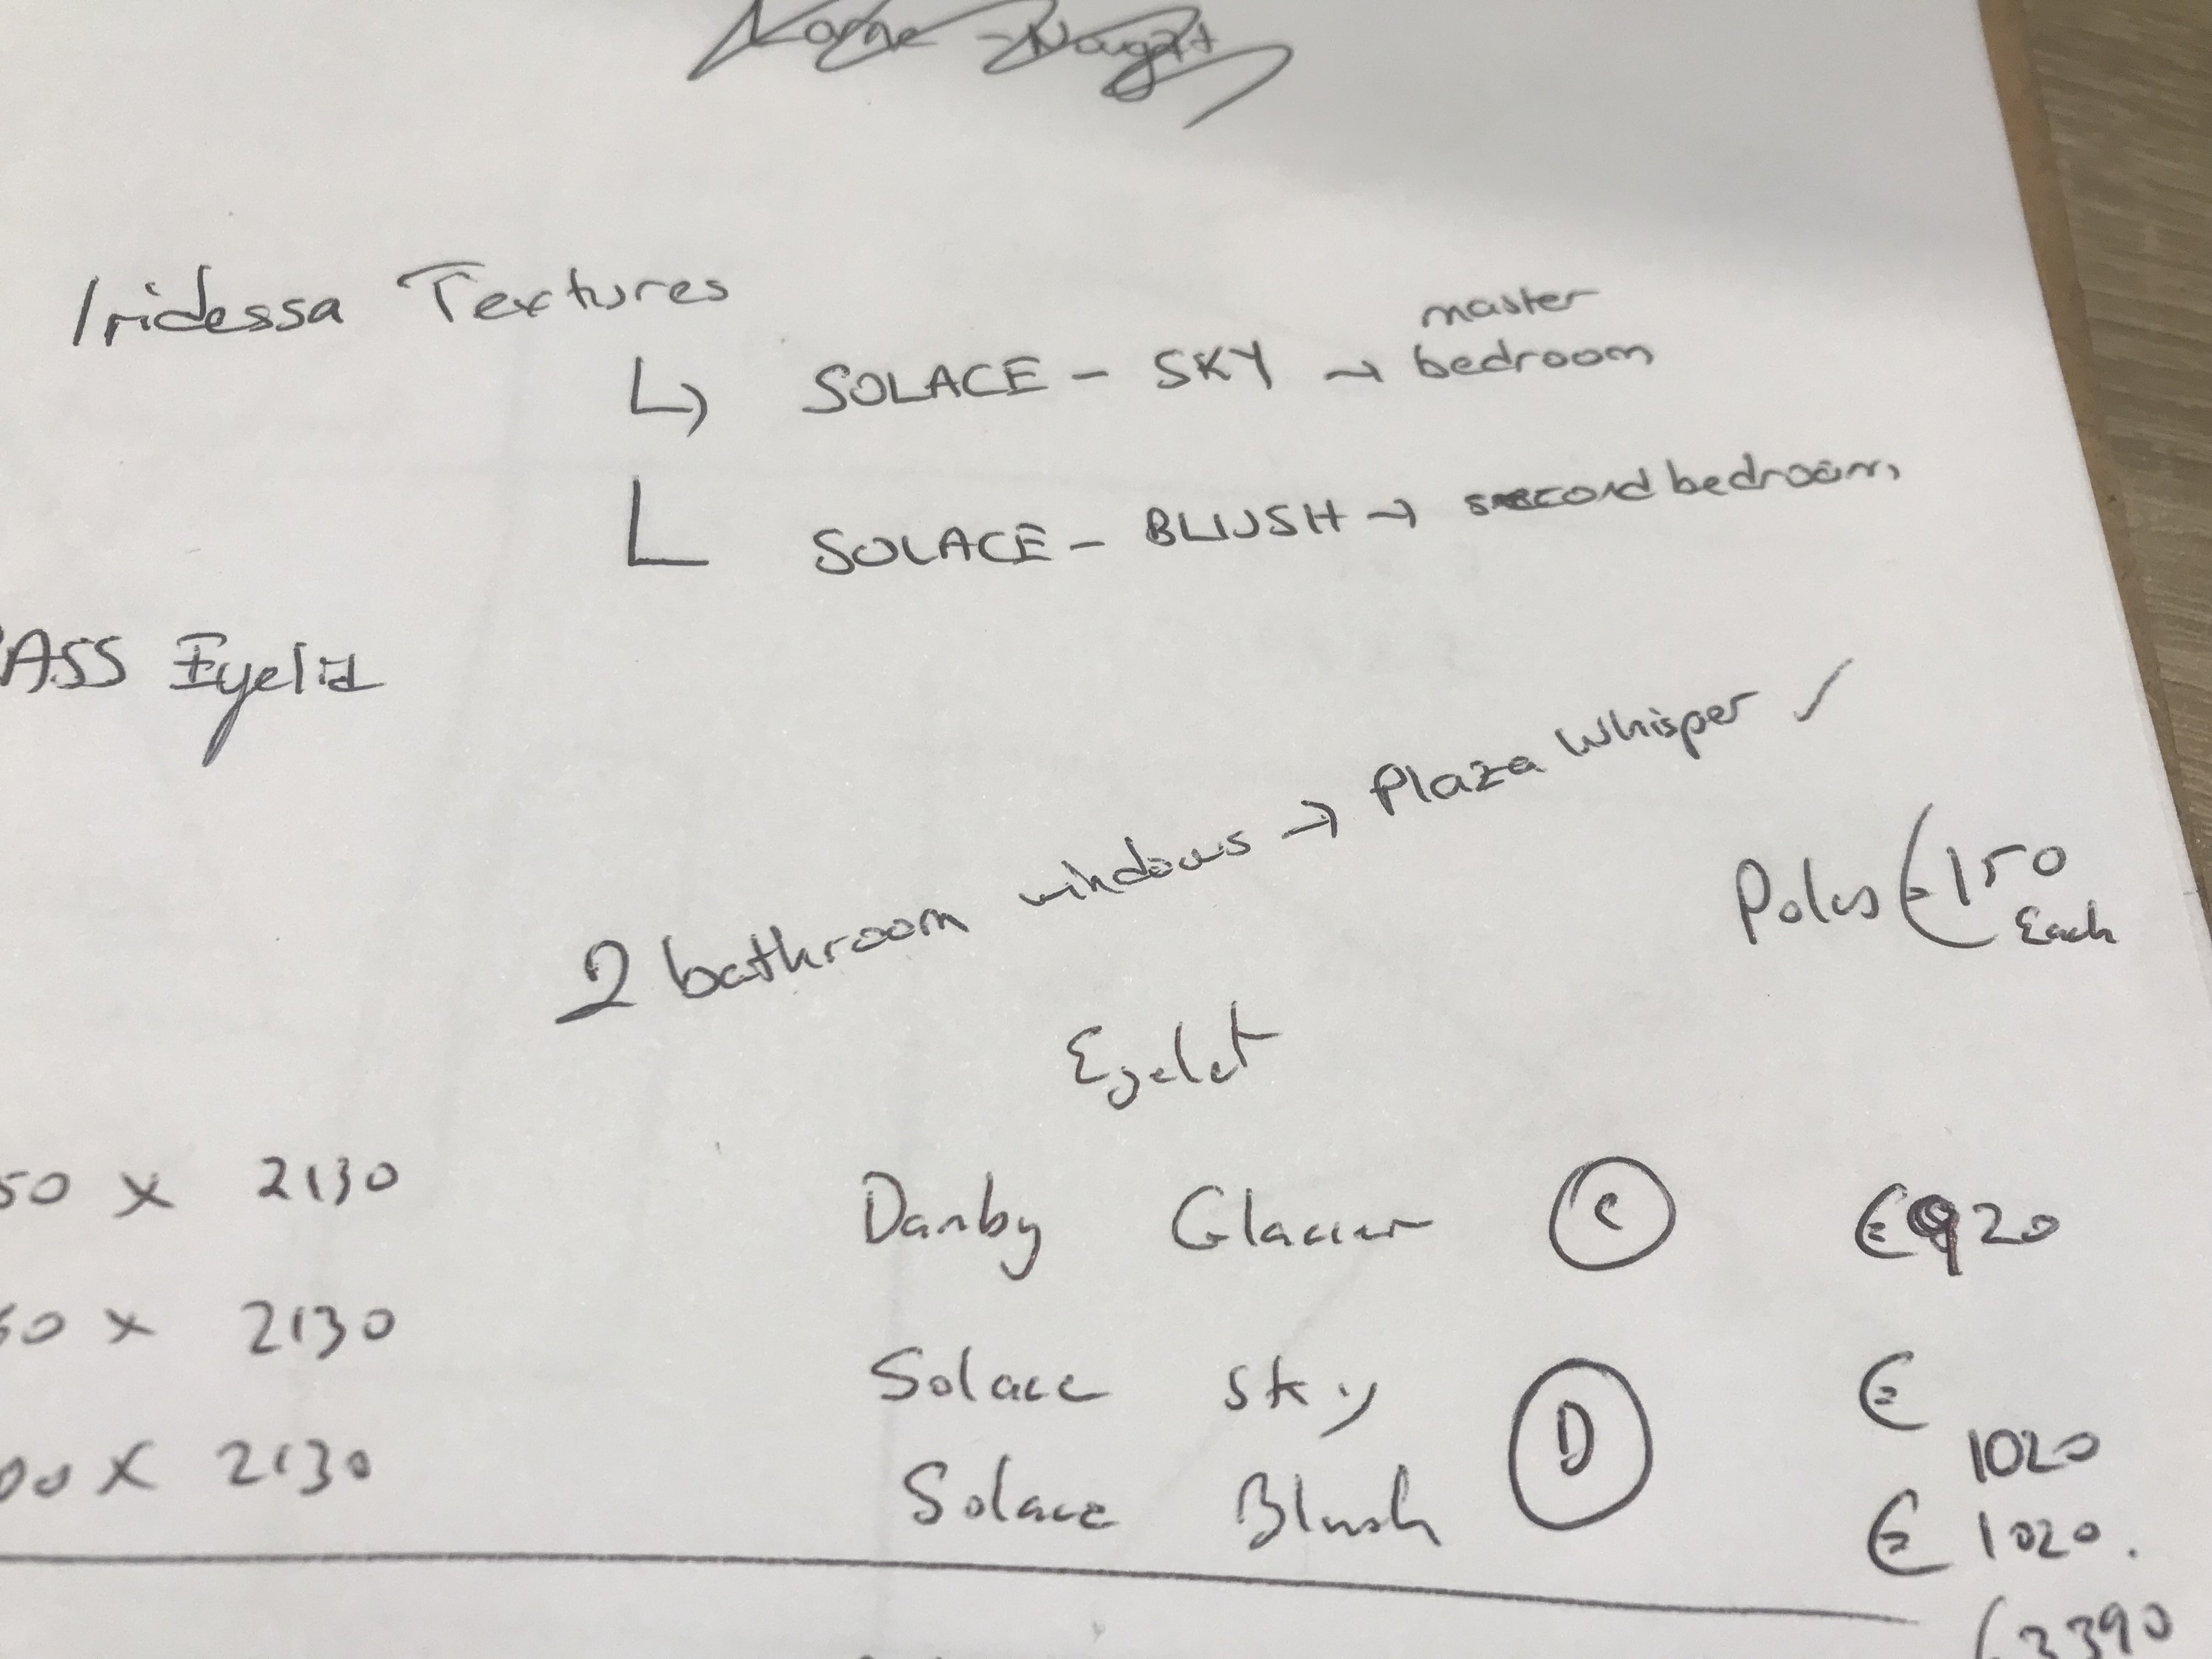 Iridessa Textures
master
SOLACE - SKY → bedroom
SOLACE - BLUSH → second bedroom
ASS Eyelid
2 bathroom windows → Plaza Whisper ✓
Poles €150
Each
Eyelet
50 x 2130 Danby Glacier C €920
60 x 2130 Solace Sky D €
1020
00 x 2130 Solace Blush € 1020.
€3390